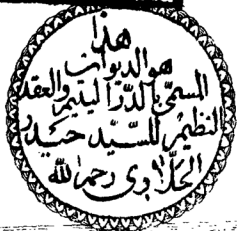 هذا
هو الديوان
المسمى الدر اليتيم والعقد
النظيم للسيد حيدر
الحلاوى رحمه الله